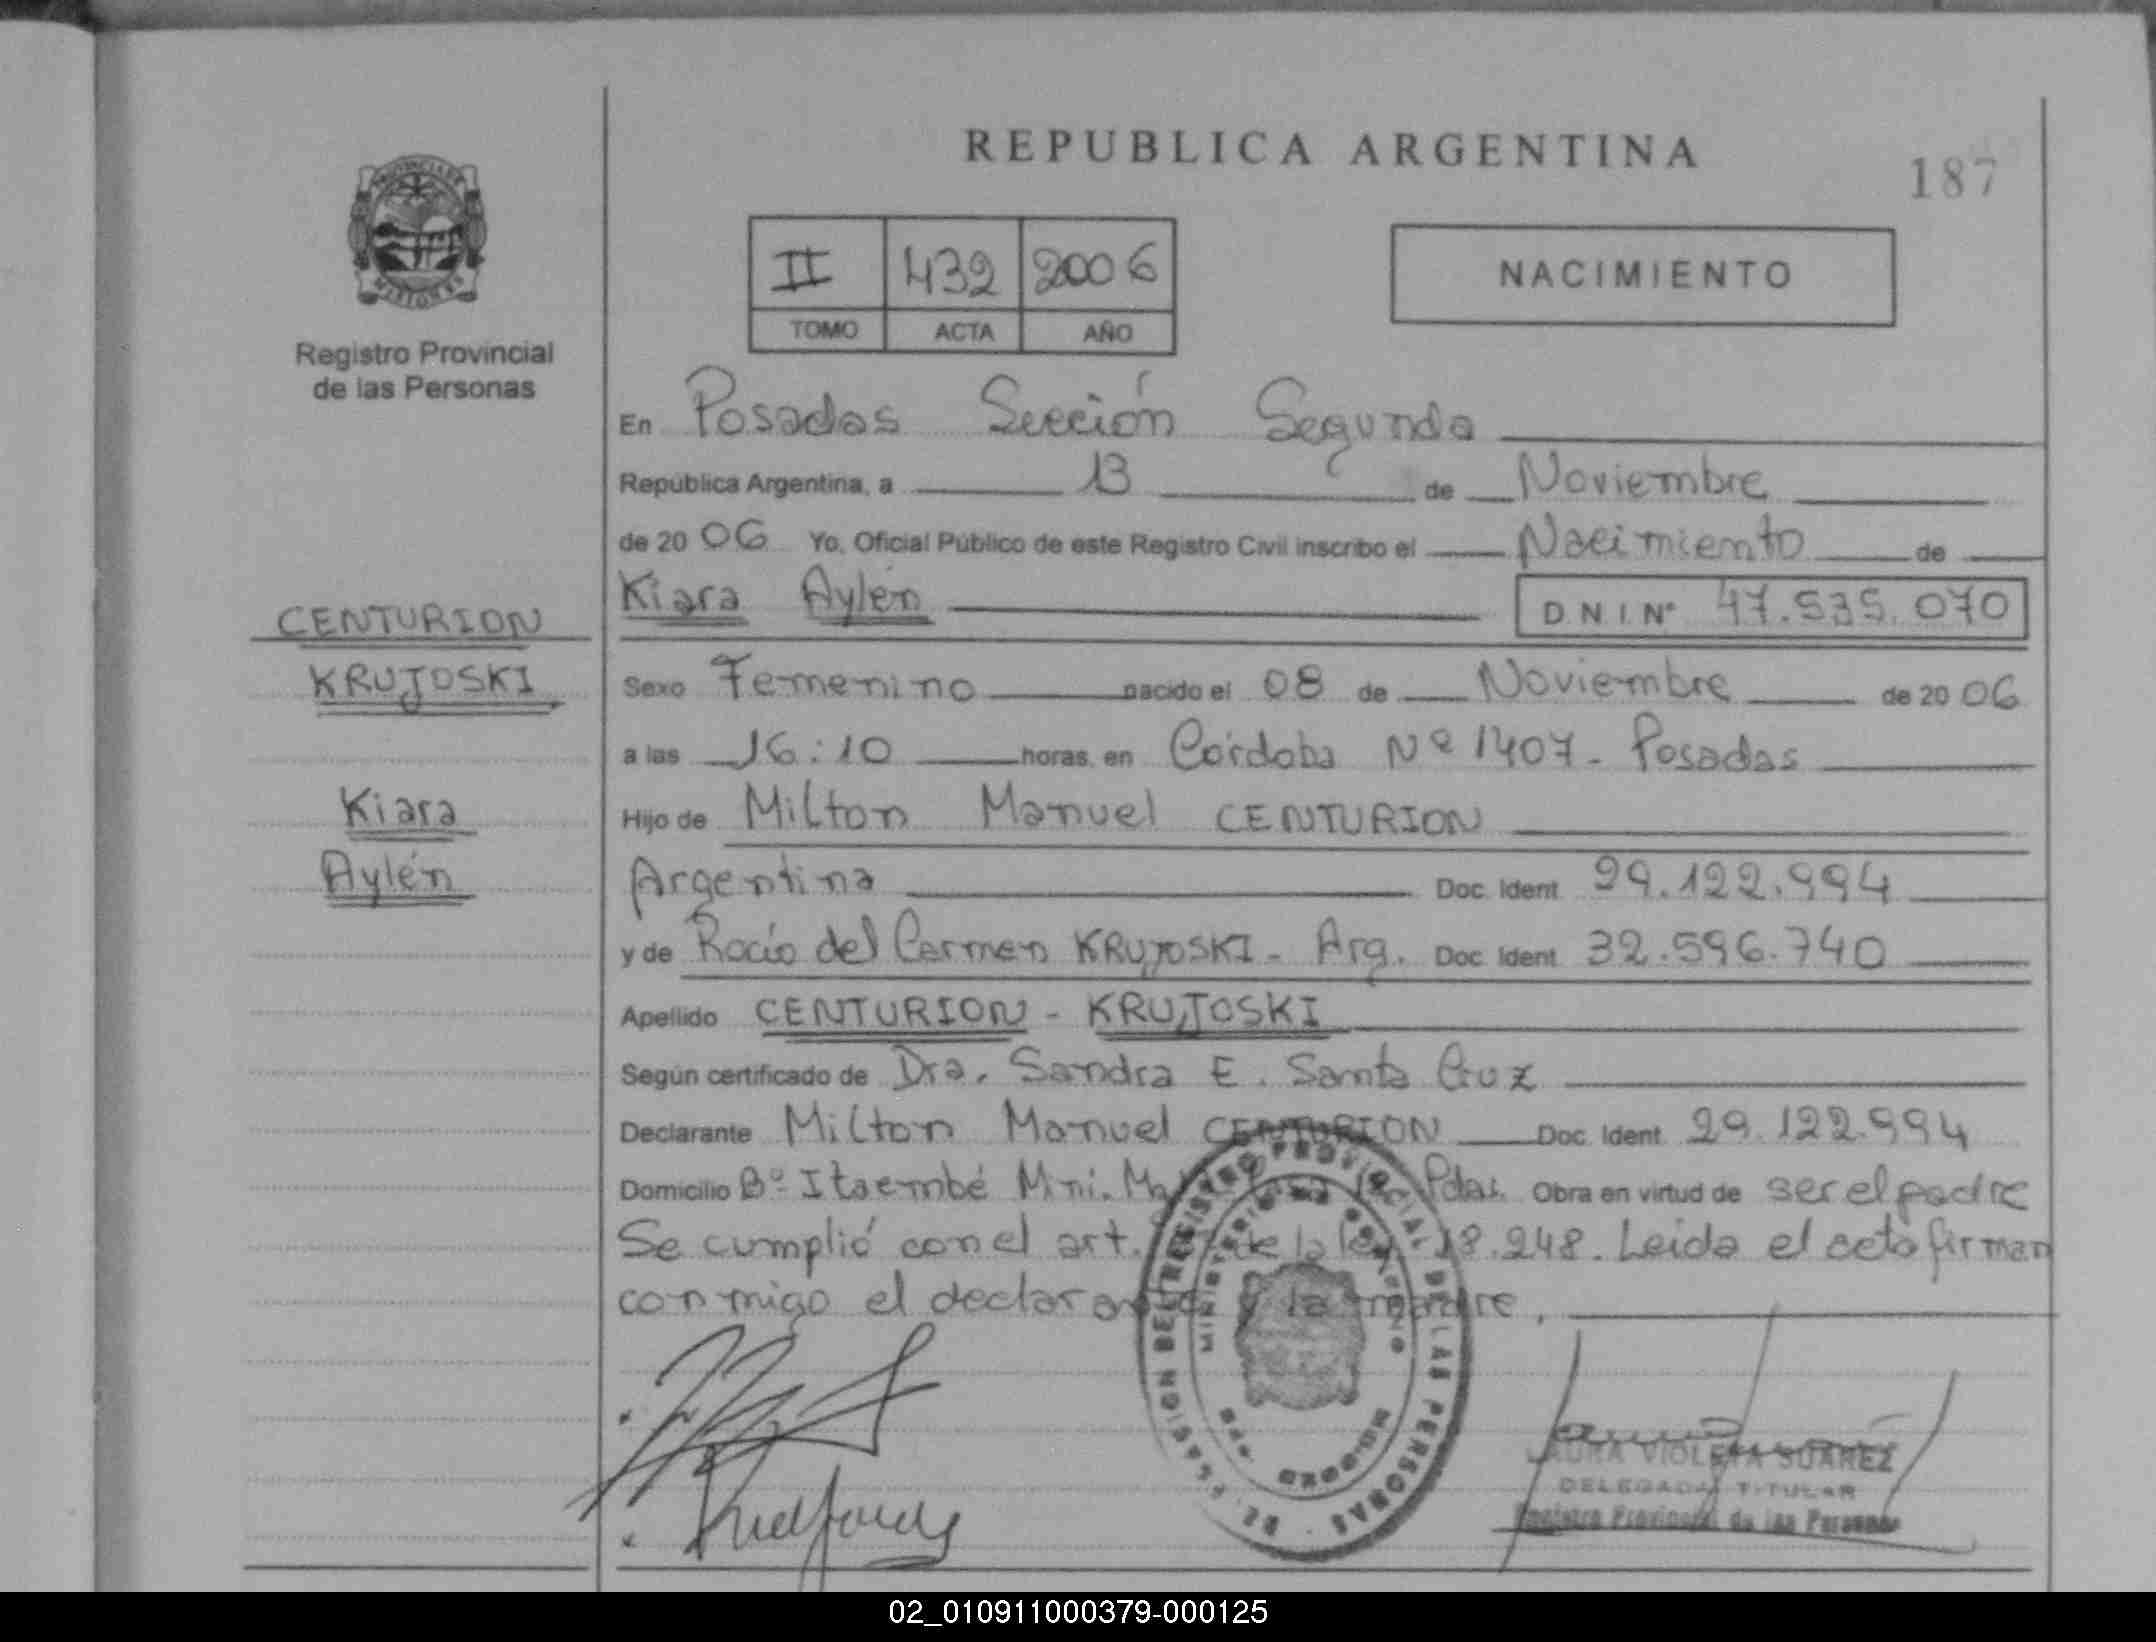 REPUBLICA ARGENTINA
187
PROVINCIA DE
MISIONES
Registro Provincial
de las Personas
II 432 2006
TOMO ACTA AÑO
NACIMIENTO
En Posadas Sección Segunda
República Argentina, a 13 de Noviembre
de 20 06 Yo, Oficial Público de este Registro Civil inscribo el Nacimiento de
Kiara Aylén D.N.I. Nº 47.535.070
CENTURION
KRUJOSKI
Kiara
Aylén
Sexo Femenino nacido el 08 de Noviembre de 20 06
a las 16:10 horas, en Córdoba Nº 1407 - Posadas
Hijo de Milton Manuel CENTURION
Argentina Doc. Ident. 29.122.994
y de Rocío del Carmen KRUJOSKI - Arg. Doc. Ident. 32.596.740
Apellido CENTURION - KRUJOSKI
Según certificado de Dra. Sandra E. Santa Cruz
Declarante Milton Manuel CENTURION Doc. Ident. 29.122.994
Domicilio Bº Itaembé Mni. Pdas. Obra en virtud de ser el padre
Se cumplió con el art. de la ley 18.248. Leida el acta firman
conmigo el declarante y la madre.
REGISTRO PROVINCIAL DE LAS PERSONAS
MINISTERIO DE GOBIERNO
LAURA VIOLETA SUAREZ
DELEGADA TITULAR
Registro Provincial de las Personas
02_010911000379-000125